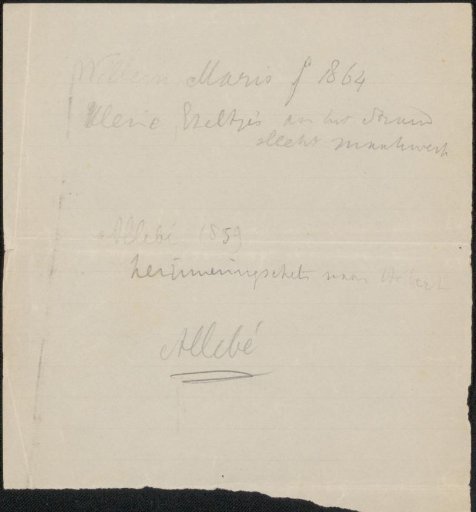 Willem Maris f 1864
kleine Ezeltjes aan het strand
slecht maakwerk
Allebé 1859
herinneringschets naar
Allebé